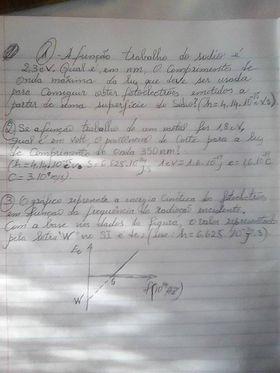 1) - A função trabalho do sodio é
2,3eV. Qual é, em nm, O Comprimento de
onda máxima da luz que deve ser usada
para conseguir obter fotoelectrões emitidos a
partir de uma superfície de Sodio? (h=4,14.10
2) Se a função trabalho de um metal for 1,8eV,
qual é em Volt o potencial de Corte para a luz
de Comprimento de onda 350nm?
(h=4,14.10 1eV=1,6.10
C=3.10⁸m/s)
3) O gráfico representa a energia Cinética do fotoelectrão
em função da frequência da radiação incidente.
Com a base nos dados da figura, o valor representado
pela letra "W" no SI é de: (h=6,625.10
Ec
6
W